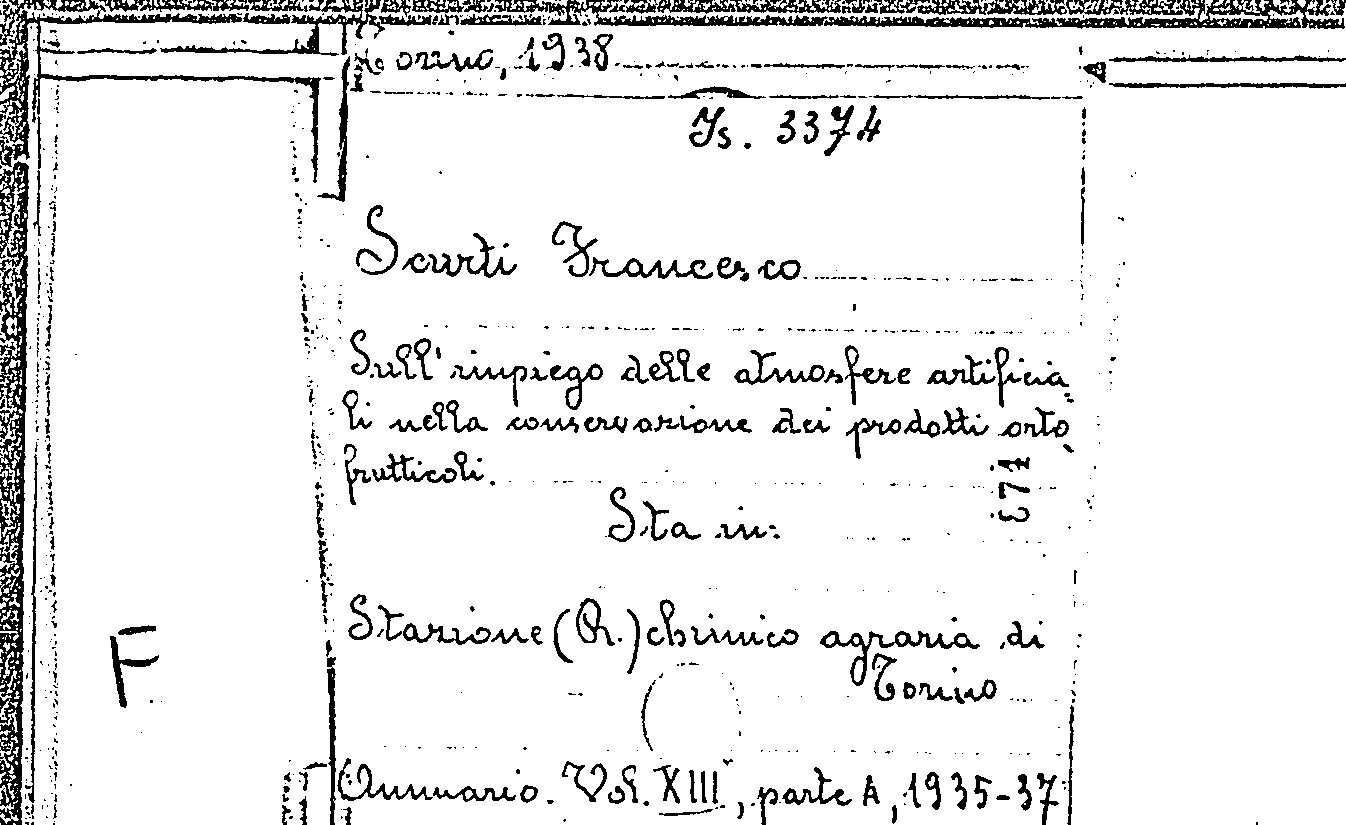 Torino, 1938
Is. 3374
Scurti Francesco
Sull'impiego delle atmosfere artificia
li nella conservazione dei prodotti orto
frutticoli.
Sta in:
Stazione (R.) chimico agraria di
Torino
F
Annuario. Vol. XIII, parte A, 1935-37